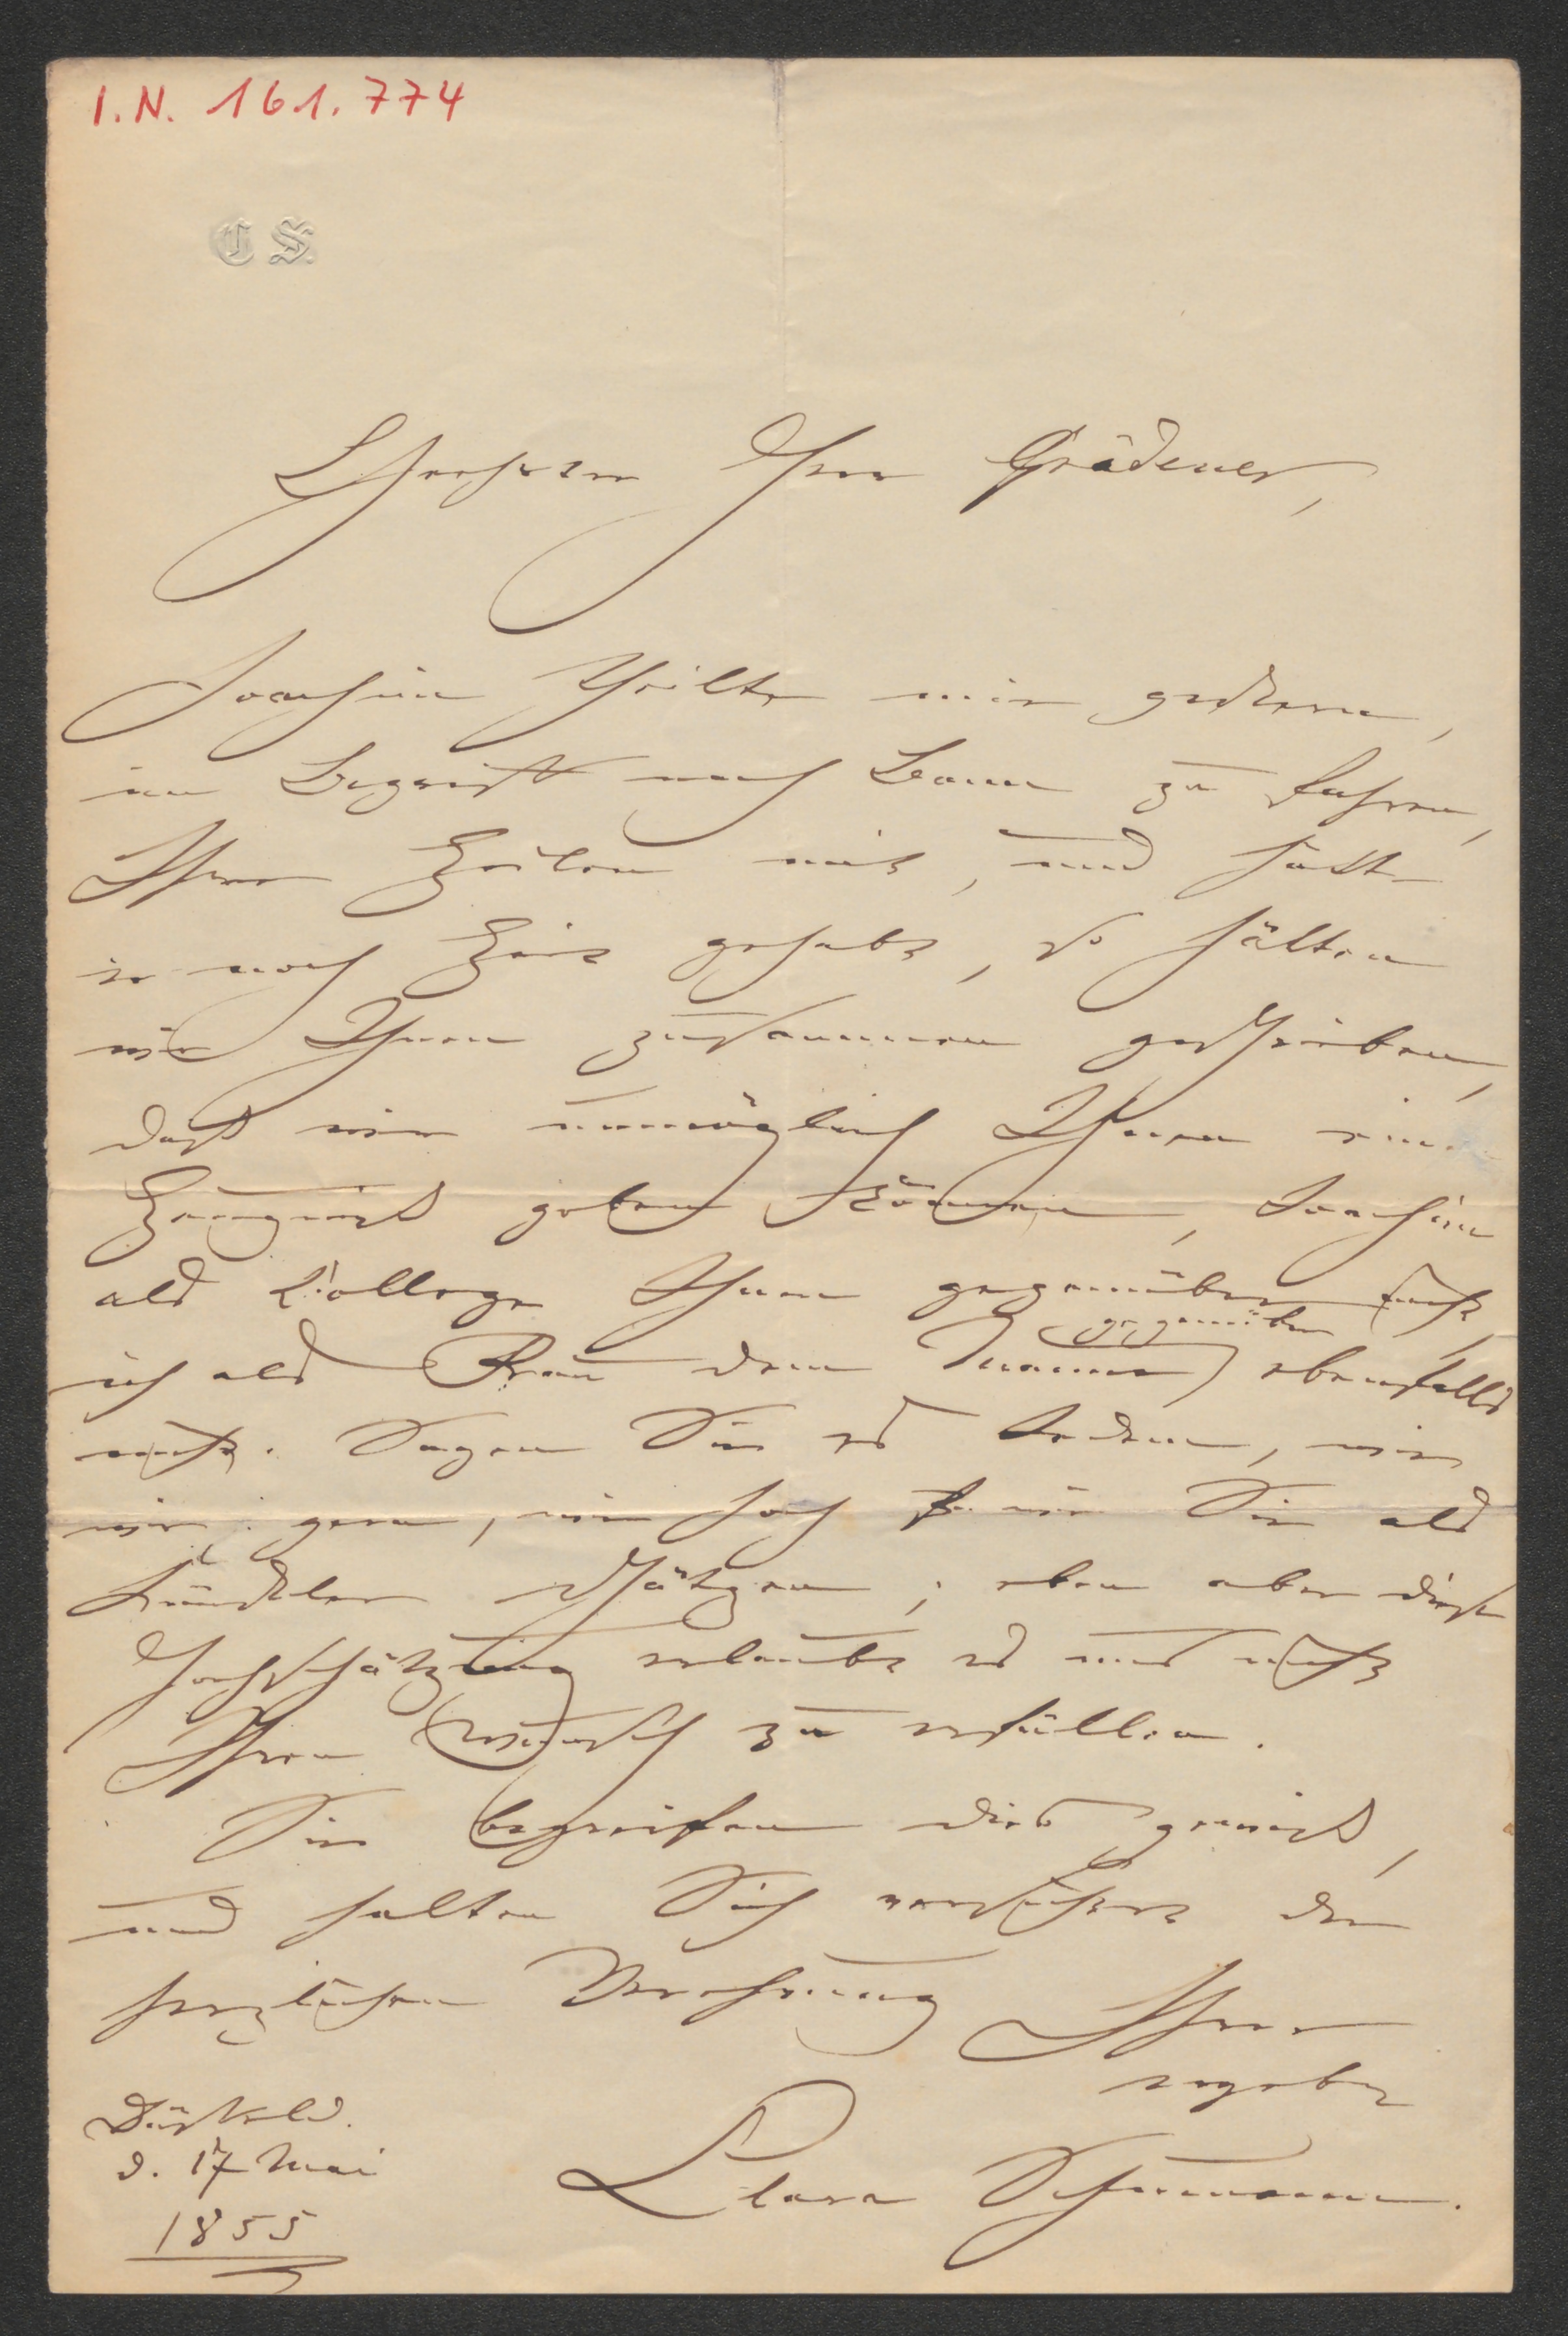 I.N. 161.774
C S.
Geehrter Herr Grädener,
Joachim theilte mir gestern,
im Begriff nach Bonn zu fahren,
Ihre Zeilen mit, und hätte
er noch Zeit gehabt, so hätten
wir Ihnen zusammen geschrieben,
daß wir unmöglich Ihnen ein
Zeugniß geben können, Joachim
als College Ihnen gegenüber nicht,
gegenüber
ich als Frau dem Manne ebenfalls
nicht. Sagen Sie es Jedem, wie
wir gern, wie hoch wir Sie als
Künstler schätzen; eben aber diese
Hochschätzung erlaubt es uns nicht
Ihren Wunsch zu erfüllen.
Sie begreifen dies gewiß,
und halten Sich versichert der
herzlichen Verehrung Ihrer
ergeben
Clara Schumann.
Düsseld.
d. 17 Mai
1855